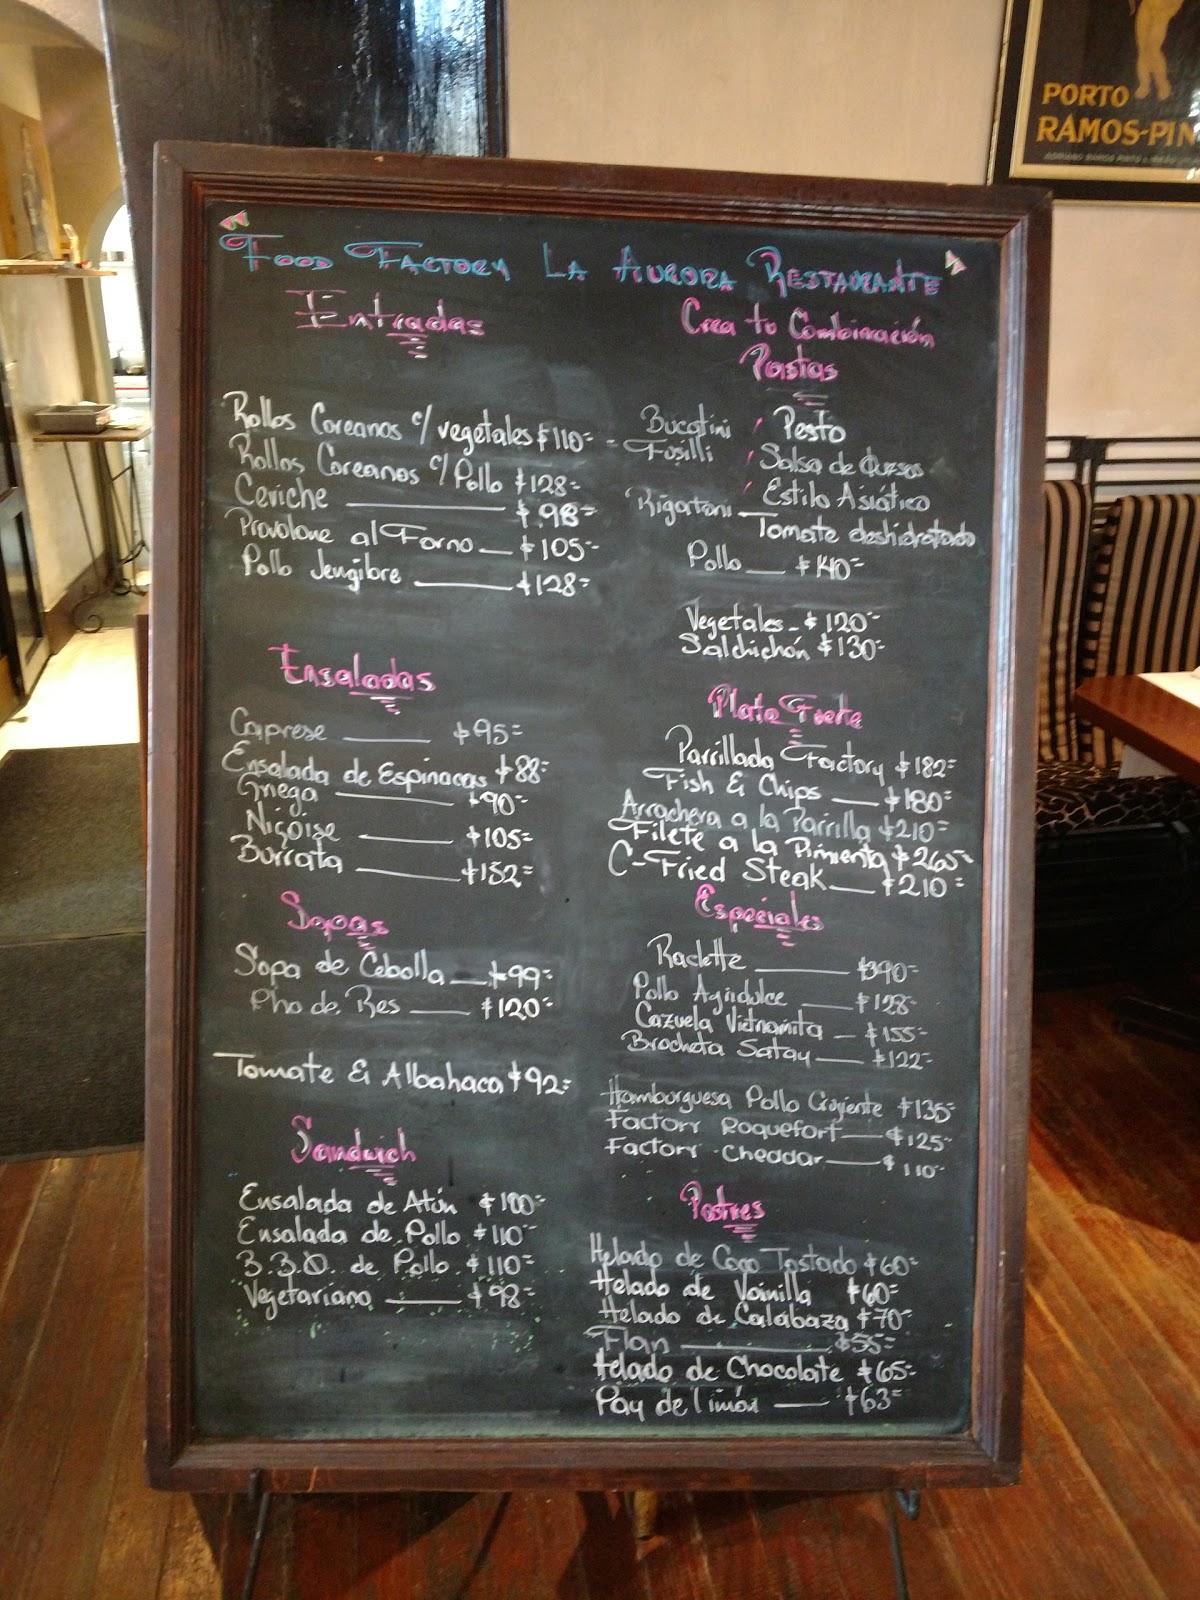 Food Factory La Aurora Restaurante
Entradas
Rollos Coreanos c/ vegetales $110-
Rollos Coreanos c/ Pollo $128-
Ceviche $98-
Provolone al Forno $105-
Pollo Jengibre $128-
Ensaladas
Caprese $95-
Ensalada de Espinacas $88-
Griega $90-
Niçoise $105-
Burrata $152-
Sopas
Sopa de Cebolla $99-
Pho de Res $120-
Tomate & Albahaca $92-
Sandwich
Ensalada de Atún $100-
Ensalada de Pollo $110-
B.B.Q. de Pollo $110-
Vegetariano $98-
Crea tu Combinación
Pastas
Bucatini / Pesto
Fusilli / Salsa de Quesos
/ Estilo Asiático
Rigatoni
Tomate deshidratado
Pollo $140-
Vegetales - $120-
Salchichón $130-
Plato Fuerte
Parrillada Factory $182-
Fish & Chips $180-
Arrachera a la Parrilla $210-
Filete a la Pimienta $265-
C-Fried Steak $210-
Especiales
Raclette $390-
Pollo Agridulce $128-
Cazuela Vietnamita $155-
Brocheta Satay $122-
Hamburguesa Pollo Crujiente $135-
Factory Roquefort $125-
Factory Cheddar $110-
Postres
Helado de Coco Tostado $60-
Helado de Vainilla $60-
Helado de Calabaza $70-
Flan $55-
Helado de Chocolate $65-
Pay de limón $63-
PORTO
RAMOS-PIN